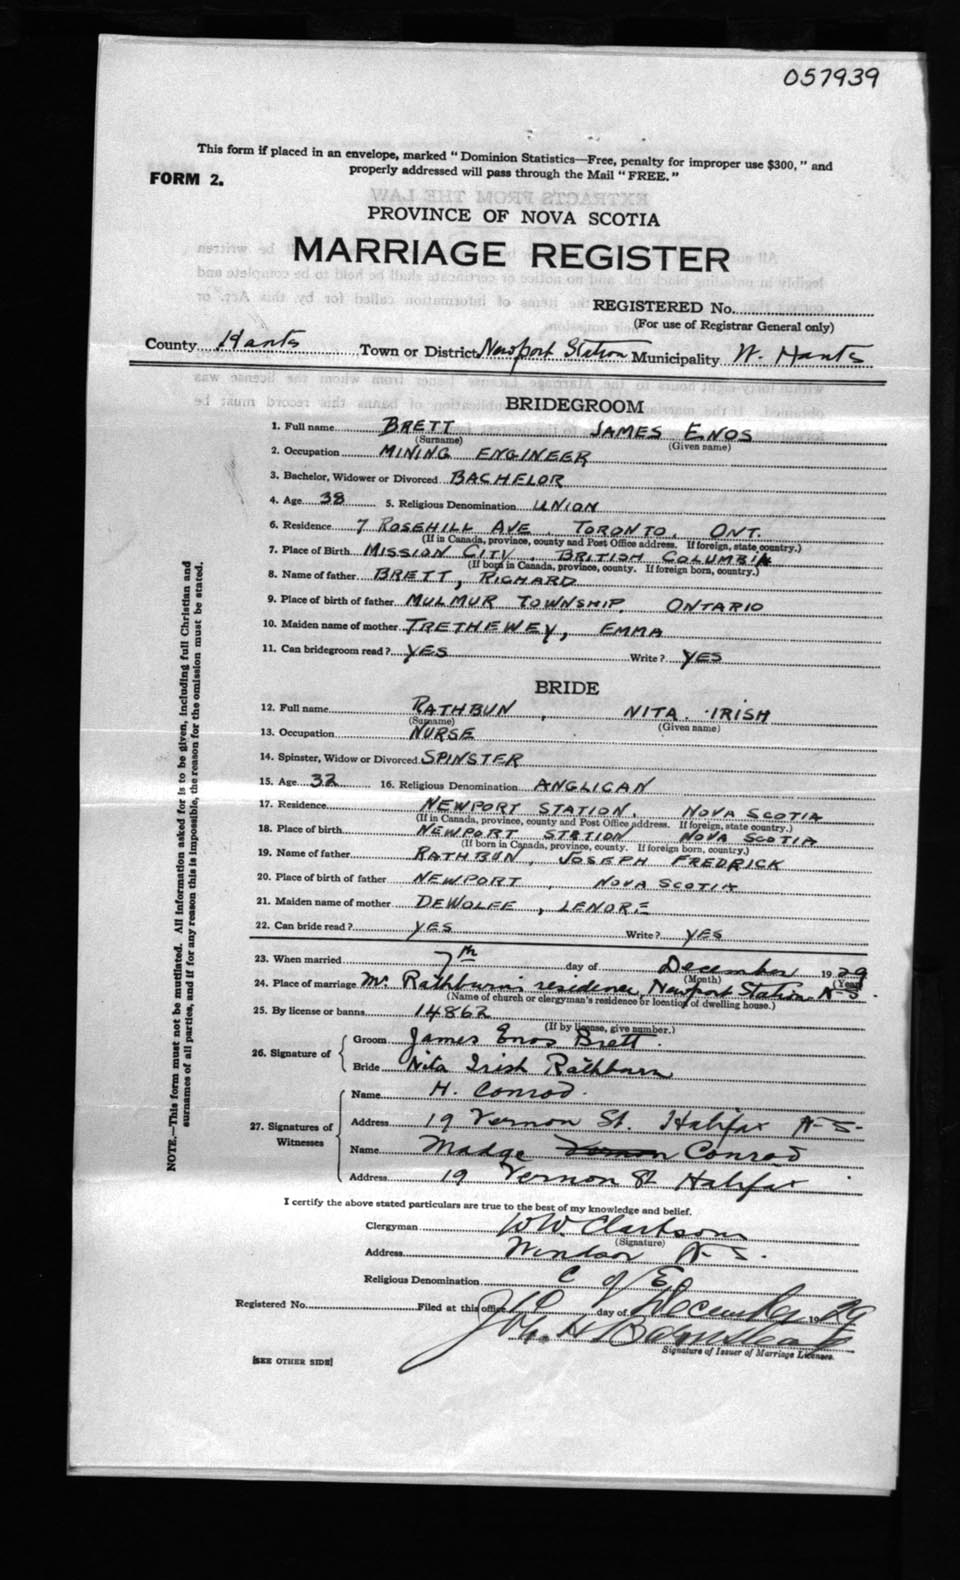 057939
This form if placed in an envelope, marked "Dominion Statistics—Free, penalty for improper use $300," and
properly addressed will pass through the Mail "FREE."
FORM 2.
PROVINCE OF NOVA SCOTIA
MARRIAGE REGISTER
REGISTERED No.
(For use of Registrar General only)
County Hants Town or District Newport Station Municipality W. Hants
BRIDEGROOM
1. Full name BRETT JAMES ENOS
(Surname) (Given name)
2. Occupation MINING ENGINEER
3. Bachelor, Widower or Divorced BACHELOR
4. Age 38 5. Religious Denomination UNION
6. Residence 7 ROSEHILL AVE, TORONTO, ONT.
(If in Canada, province, county and Post Office address. If foreign, state country.)
7. Place of Birth MISSION CITY, BRITISH COLUMBIA
(If born in Canada, province, county. If foreign born, country.)
8. Name of father BRETT, RICHARD
9. Place of birth of father MULMUR TOWNSHIP, ONTARIO
10. Maiden name of mother TRETHEWEY, EMMA
11. Can bridegroom read? YES Write? YES
BRIDE
12. Full name RATHBUN, NITA IRISH
(Surname) (Given name)
13. Occupation NURSE
14. Spinster, Widow or Divorced SPINSTER
15. Age 32 16. Religious Denomination ANGLICAN
17. Residence NEWPORT STATION, NOVA SCOTIA
(If in Canada, province, county and Post Office address. If foreign, state country.)
18. Place of birth NEWPORT STATION NOVA SCOTIA
(If born in Canada, province, county. If foreign born, country.)
19. Name of father RATHBUN, JOSEPH FREDRICK
20. Place of birth of father NEWPORT, NOVA SCOTIA
21. Maiden name of mother DEWOLFE, LENORE
22. Can bride read? YES Write? YES
23. When married 7th day of December 1929
(Month) (Year)
24. Place of marriage Mr. Rathburn's residence, Newport Station, N.S.
(Name of church or clergyman's residence or location of dwelling house.)
25. By license or banns 14862
(If by license, give number.)
26. Signature of
Groom James Enos Brett.
Bride Nita Irish Rathburn
27. Signatures of Witnesses
Name H. Conrod.
Address 19 Vernon St. Halifax N.S.
Name Madge Vernon Conrod
Address 19 Vernon St Halifax
I certify the above stated particulars are true to the best of my knowledge and belief.
Clergyman W W. Clarkson
(Signature)
Address Windsor N.S.
Religious Denomination C of E
Registered No. Filed at this office 10 day of December 1929
Jno. H.
Signature of Issuer of Marriage Licenses.
[SEE OTHER SIDE]
NOTE.—This form must not be mutilated. All information asked for is to be given, including full Christian and
surnames of all parties, and if for any reason this is impossible, the reason for the omission must be stated.